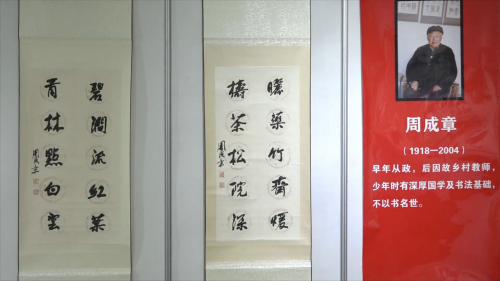 碧澗流紅葉
青林點白雲
周成章
曬藥竹齋煖
擣茶松院深
周成章
周成章
（1918—2004）
早年从政，后因故乡村教师，
少年时有深厚国学及书法基础，
不以书名世。